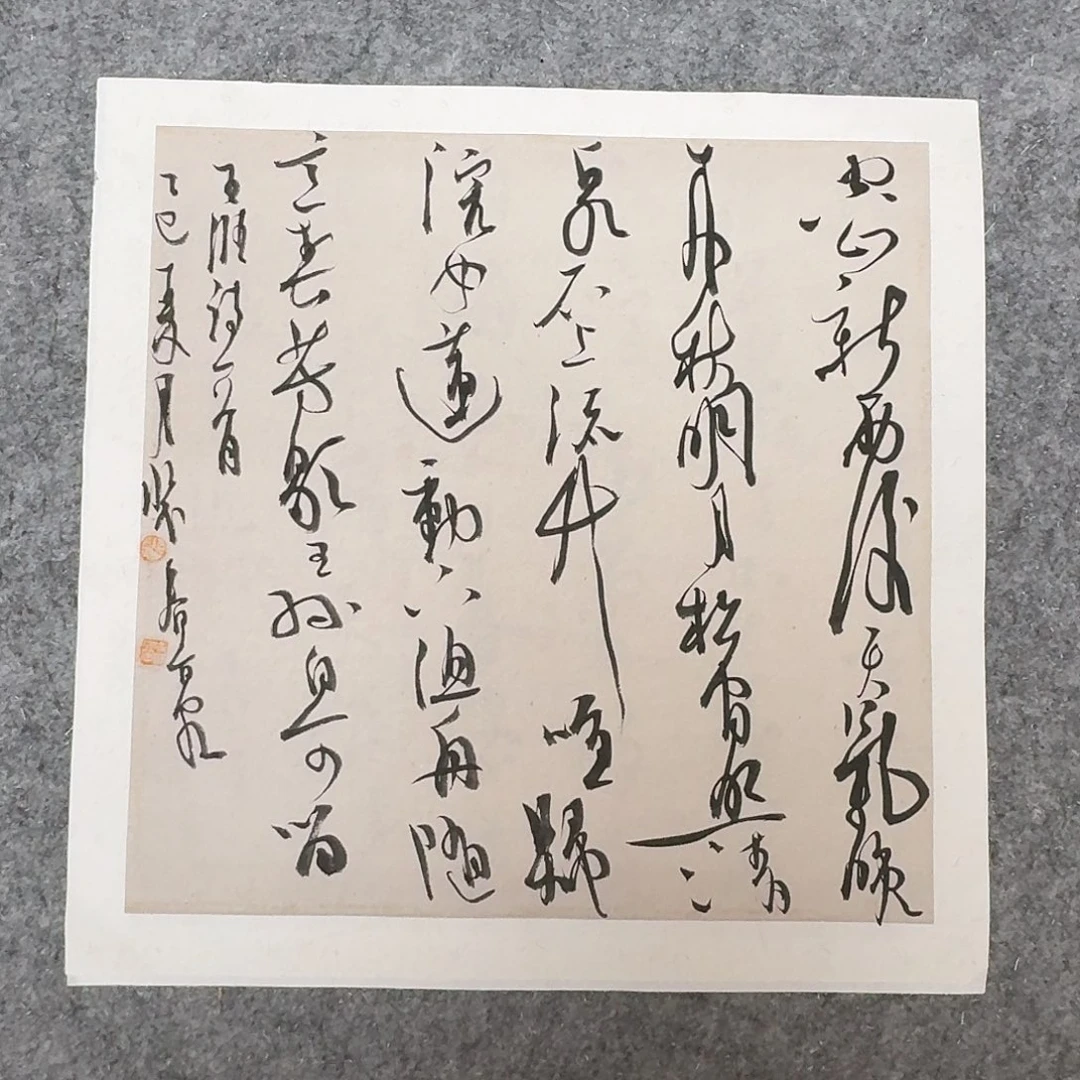 空山新雨後天氣晚
來秋明月松間照清
泉石上流竹喧歸
浣女蓮動下漁舟隨
意春芳歇王孫自可留
王維詩一首
乙巳夏月